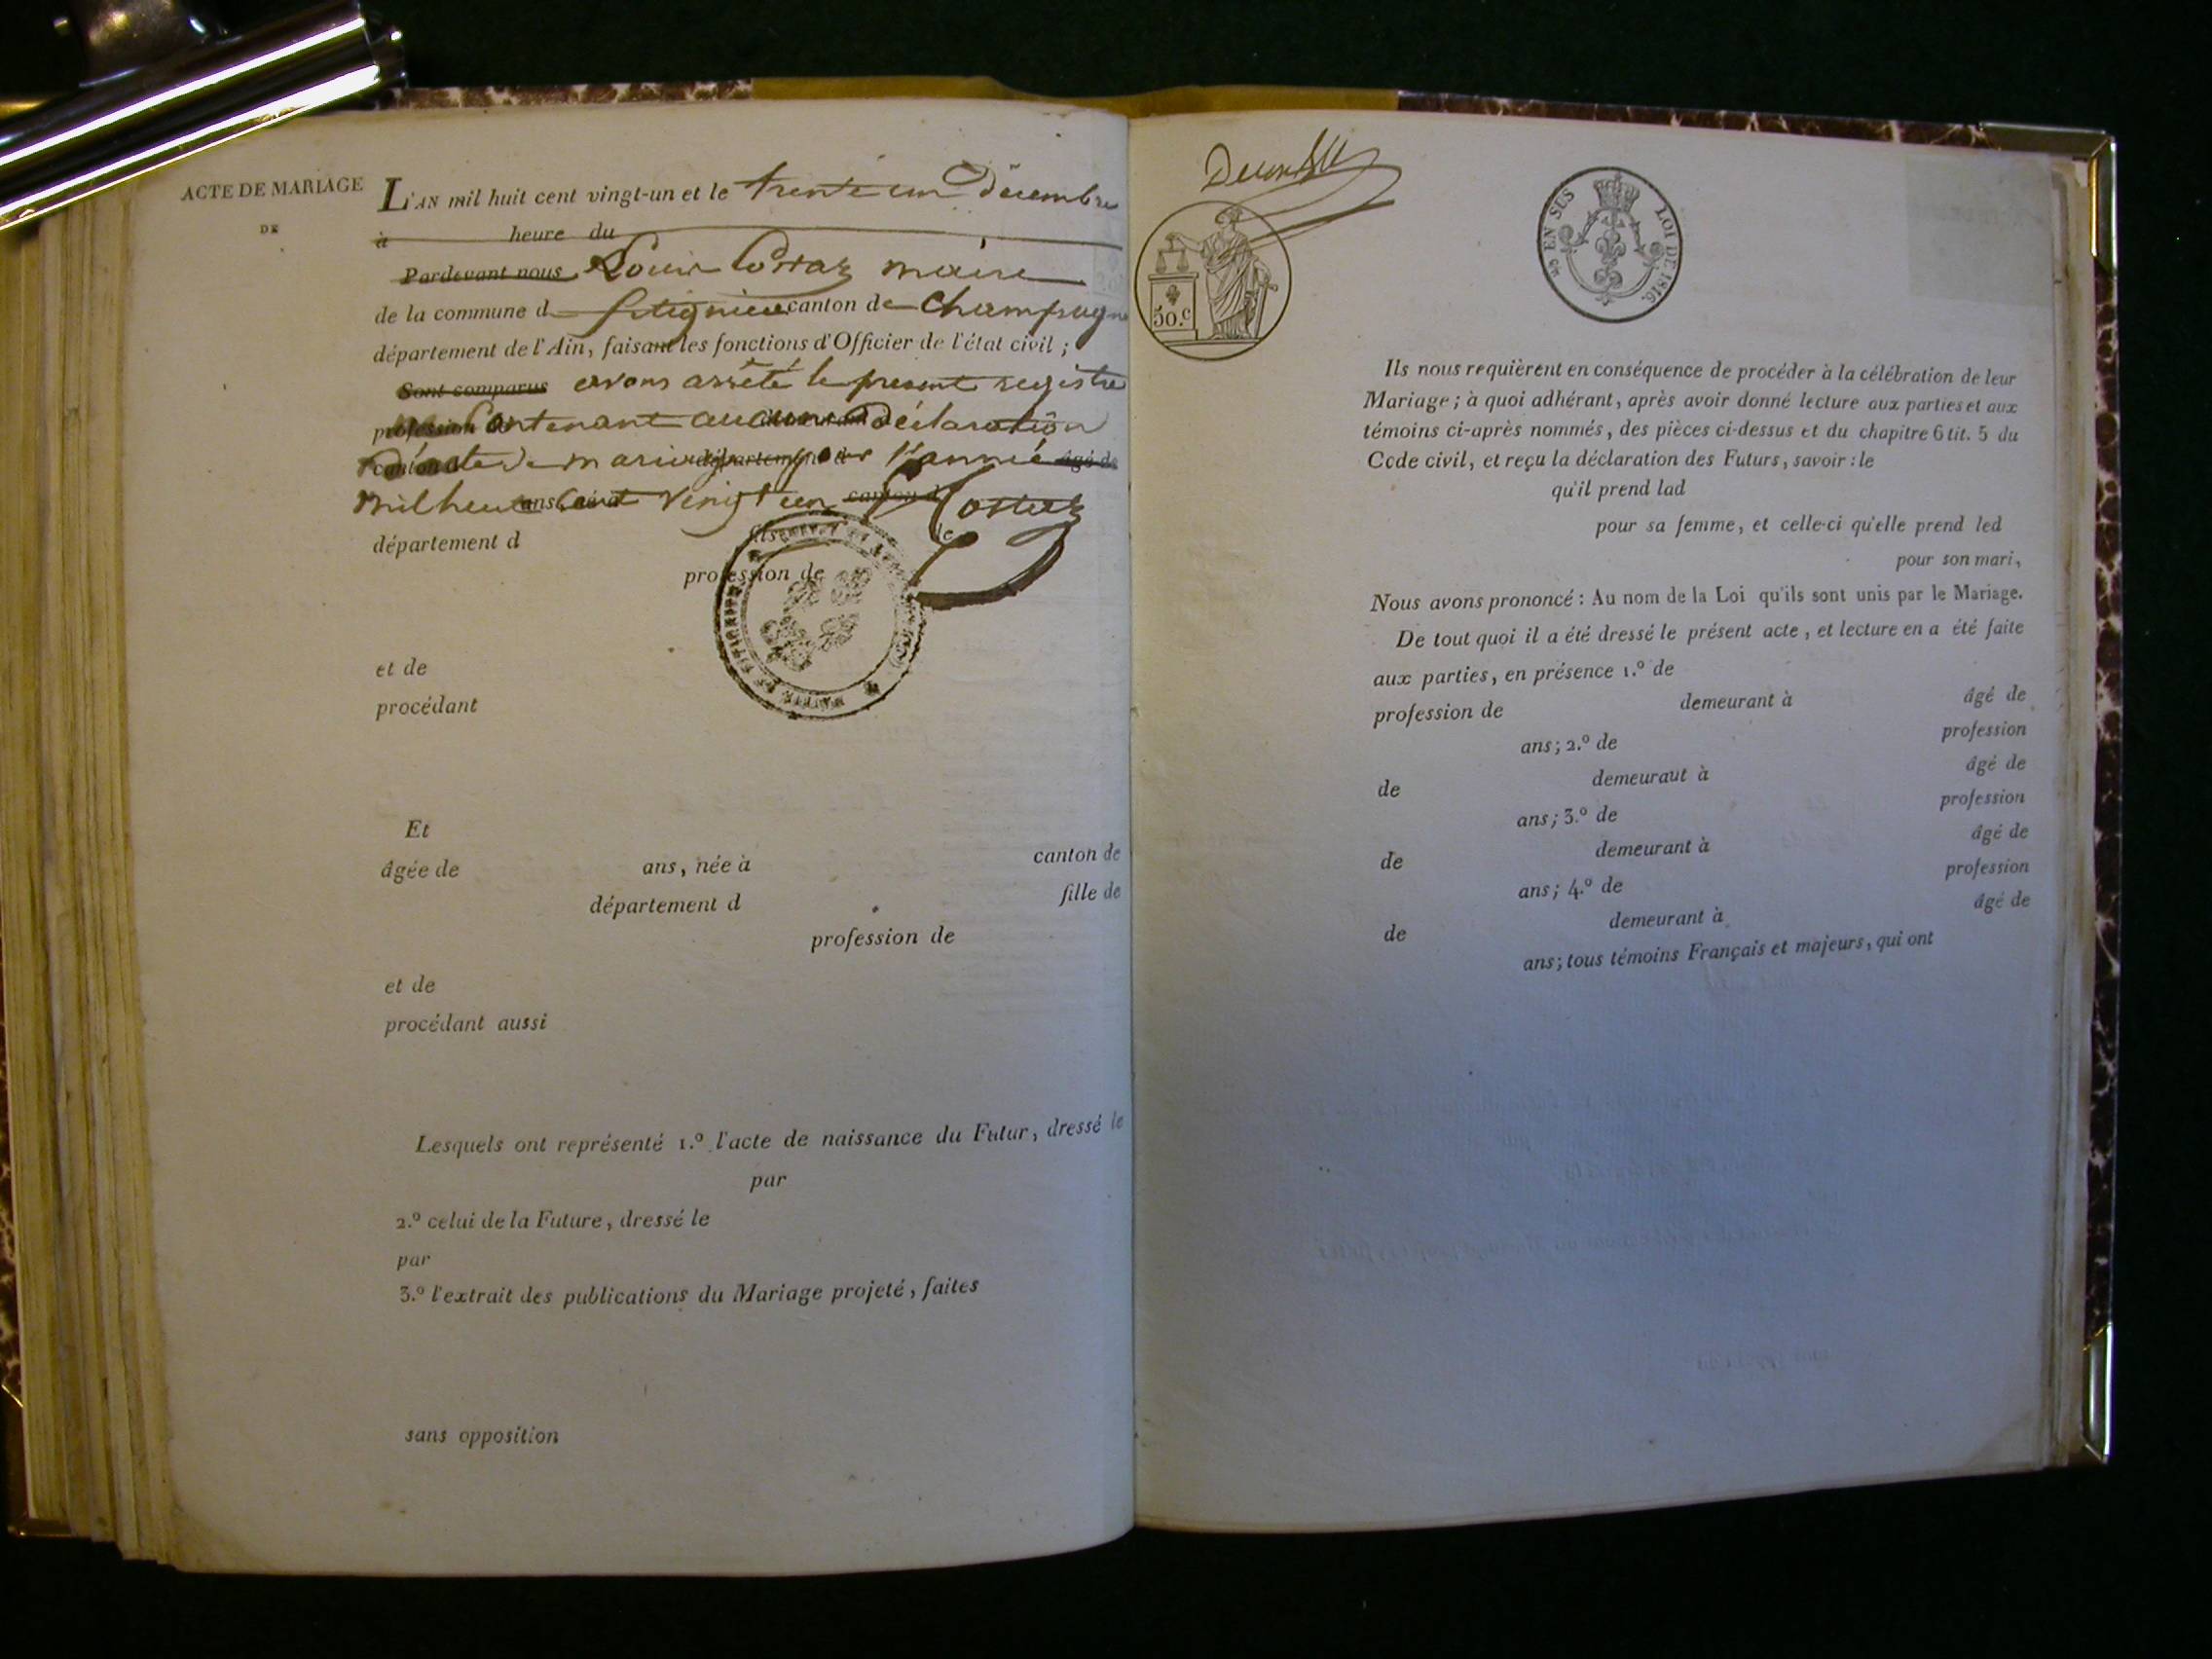 ACTE DE MARIAGE
DE
L'AN mil huit cent vingt-un et le trente un Décembre
à heure du
Pardevant nous Louis Costaz maire
de la commune d fitignieu canton de Champagne
département de l'Ain, faisant les fonctions d'Officier de l'état civil ;
Sont comparus avons arrêté le present registre
profession Contenant aucune Déclaration
canton d'acte de mariage département d pour l'année âgé de
mil huit ans Cent vingt un canton d Costaz
département d fils de
profession de
et de
procédant
Et
âgée de ans, née à canton de
département d fille de
profession de
et de
procédant aussi
Lesquels ont représenté 1.º l'acte de naissance du Futur, dressé le
par
2.º celui de la Future, dressé le
par
3.º l'extrait des publications du Mariage projeté, faites
sans opposition
50.c
EN SUS LOI DE 1816.
Ils nous requièrent en conséquence de procéder à la célébration de leur
Mariage ; à quoi adhérant, après avoir donné lecture aux parties et aux
témoins ci-après nommés, des pièces ci-dessus et du chapitre 6 tit. 5 du
Code civil, et reçu la déclaration des Futurs, savoir : le
qu'il prend lad
pour sa femme, et celle-ci qu'elle prend led
pour son mari,
Nous avons prononcé : Au nom de la Loi qu'ils sont unis par le Mariage.
De tout quoi il a été dressé le présent acte, et lecture en a été faite
aux parties, en présence 1.º de
profession de demeurant à âgé de
ans ; 2.º de profession
de demeuraut à âgé de
ans ; 3.º de profession
de demeurant à âgé de
ans ; 4.º de profession
de demeurant à âgé de
ans ; tous témoins Français et majeurs, qui ont